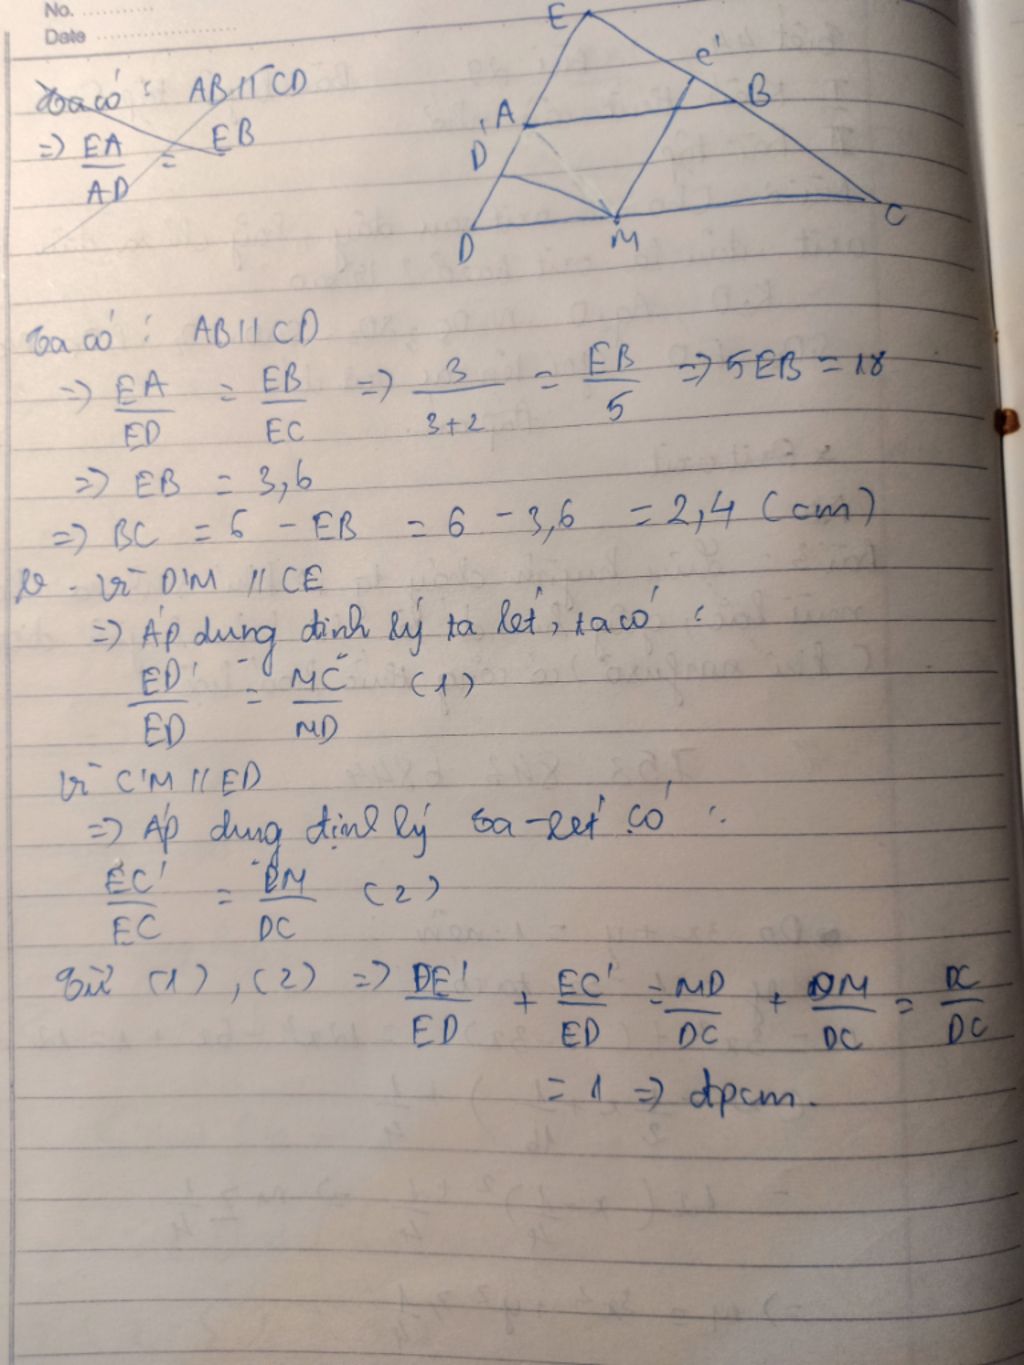 No.
Date
Ta có : AB // CD
=> EA/AD = EB
E
C'
B
A
D'
D
M
C
Ta có : AB // CD
=> EA/ED = EB/EC => 3/(3+2) = EB/5 => 5EB = 18
=> EB = 3,6
=> BC = 6 - EB = 6 - 3,6 = 2,4 (cm)
b. Vì D'M // CE
=> Áp dụng định lý ta let, ta có :
ED'/ED = MC/MD (1)
Vì C'M // ED
=> Áp dụng định lý Ta-let có :
EC'/EC = DM/DC (2)
Từ (1), (2) => DE'/ED + EC'/ED = MD/DC + DM/DC = DC/DC
= 1 => đpcm.